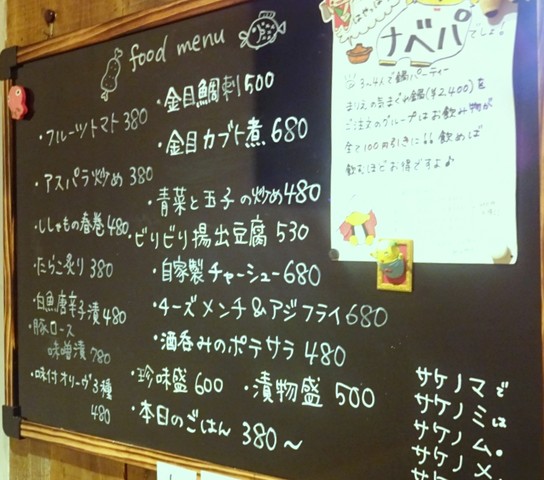 food menu
・フルーツトマト 380
・アスパラ炒め 380
・ししゃもの春巻 480
・たらこ炙り 380
・白魚唐辛子漬 480
・豚ロース
味噌漬 780
・味付オリーヴ3種
480
・金目鯛刺 500
・金目カブト煮 680
・青菜と玉子の炒め 480
・ビリビリ揚出豆腐 530
・自家製チャーシュー 680
・チーズメンチ&アジフライ 680
・酒呑みのポテサラ 480
・珍味盛 600 ・漬物盛 500
・本日のごはん 380〜
ナベパでしょ!
3〜4人で鍋パーティー
まりえの気まぐれ鍋(¥2400)を
ご注文のグループはお飲み物が
全て100円引きに!! 飲めば
飲むほどお得ですよ♪
サケノマで
サケノミは
サケノム。
サケノメ